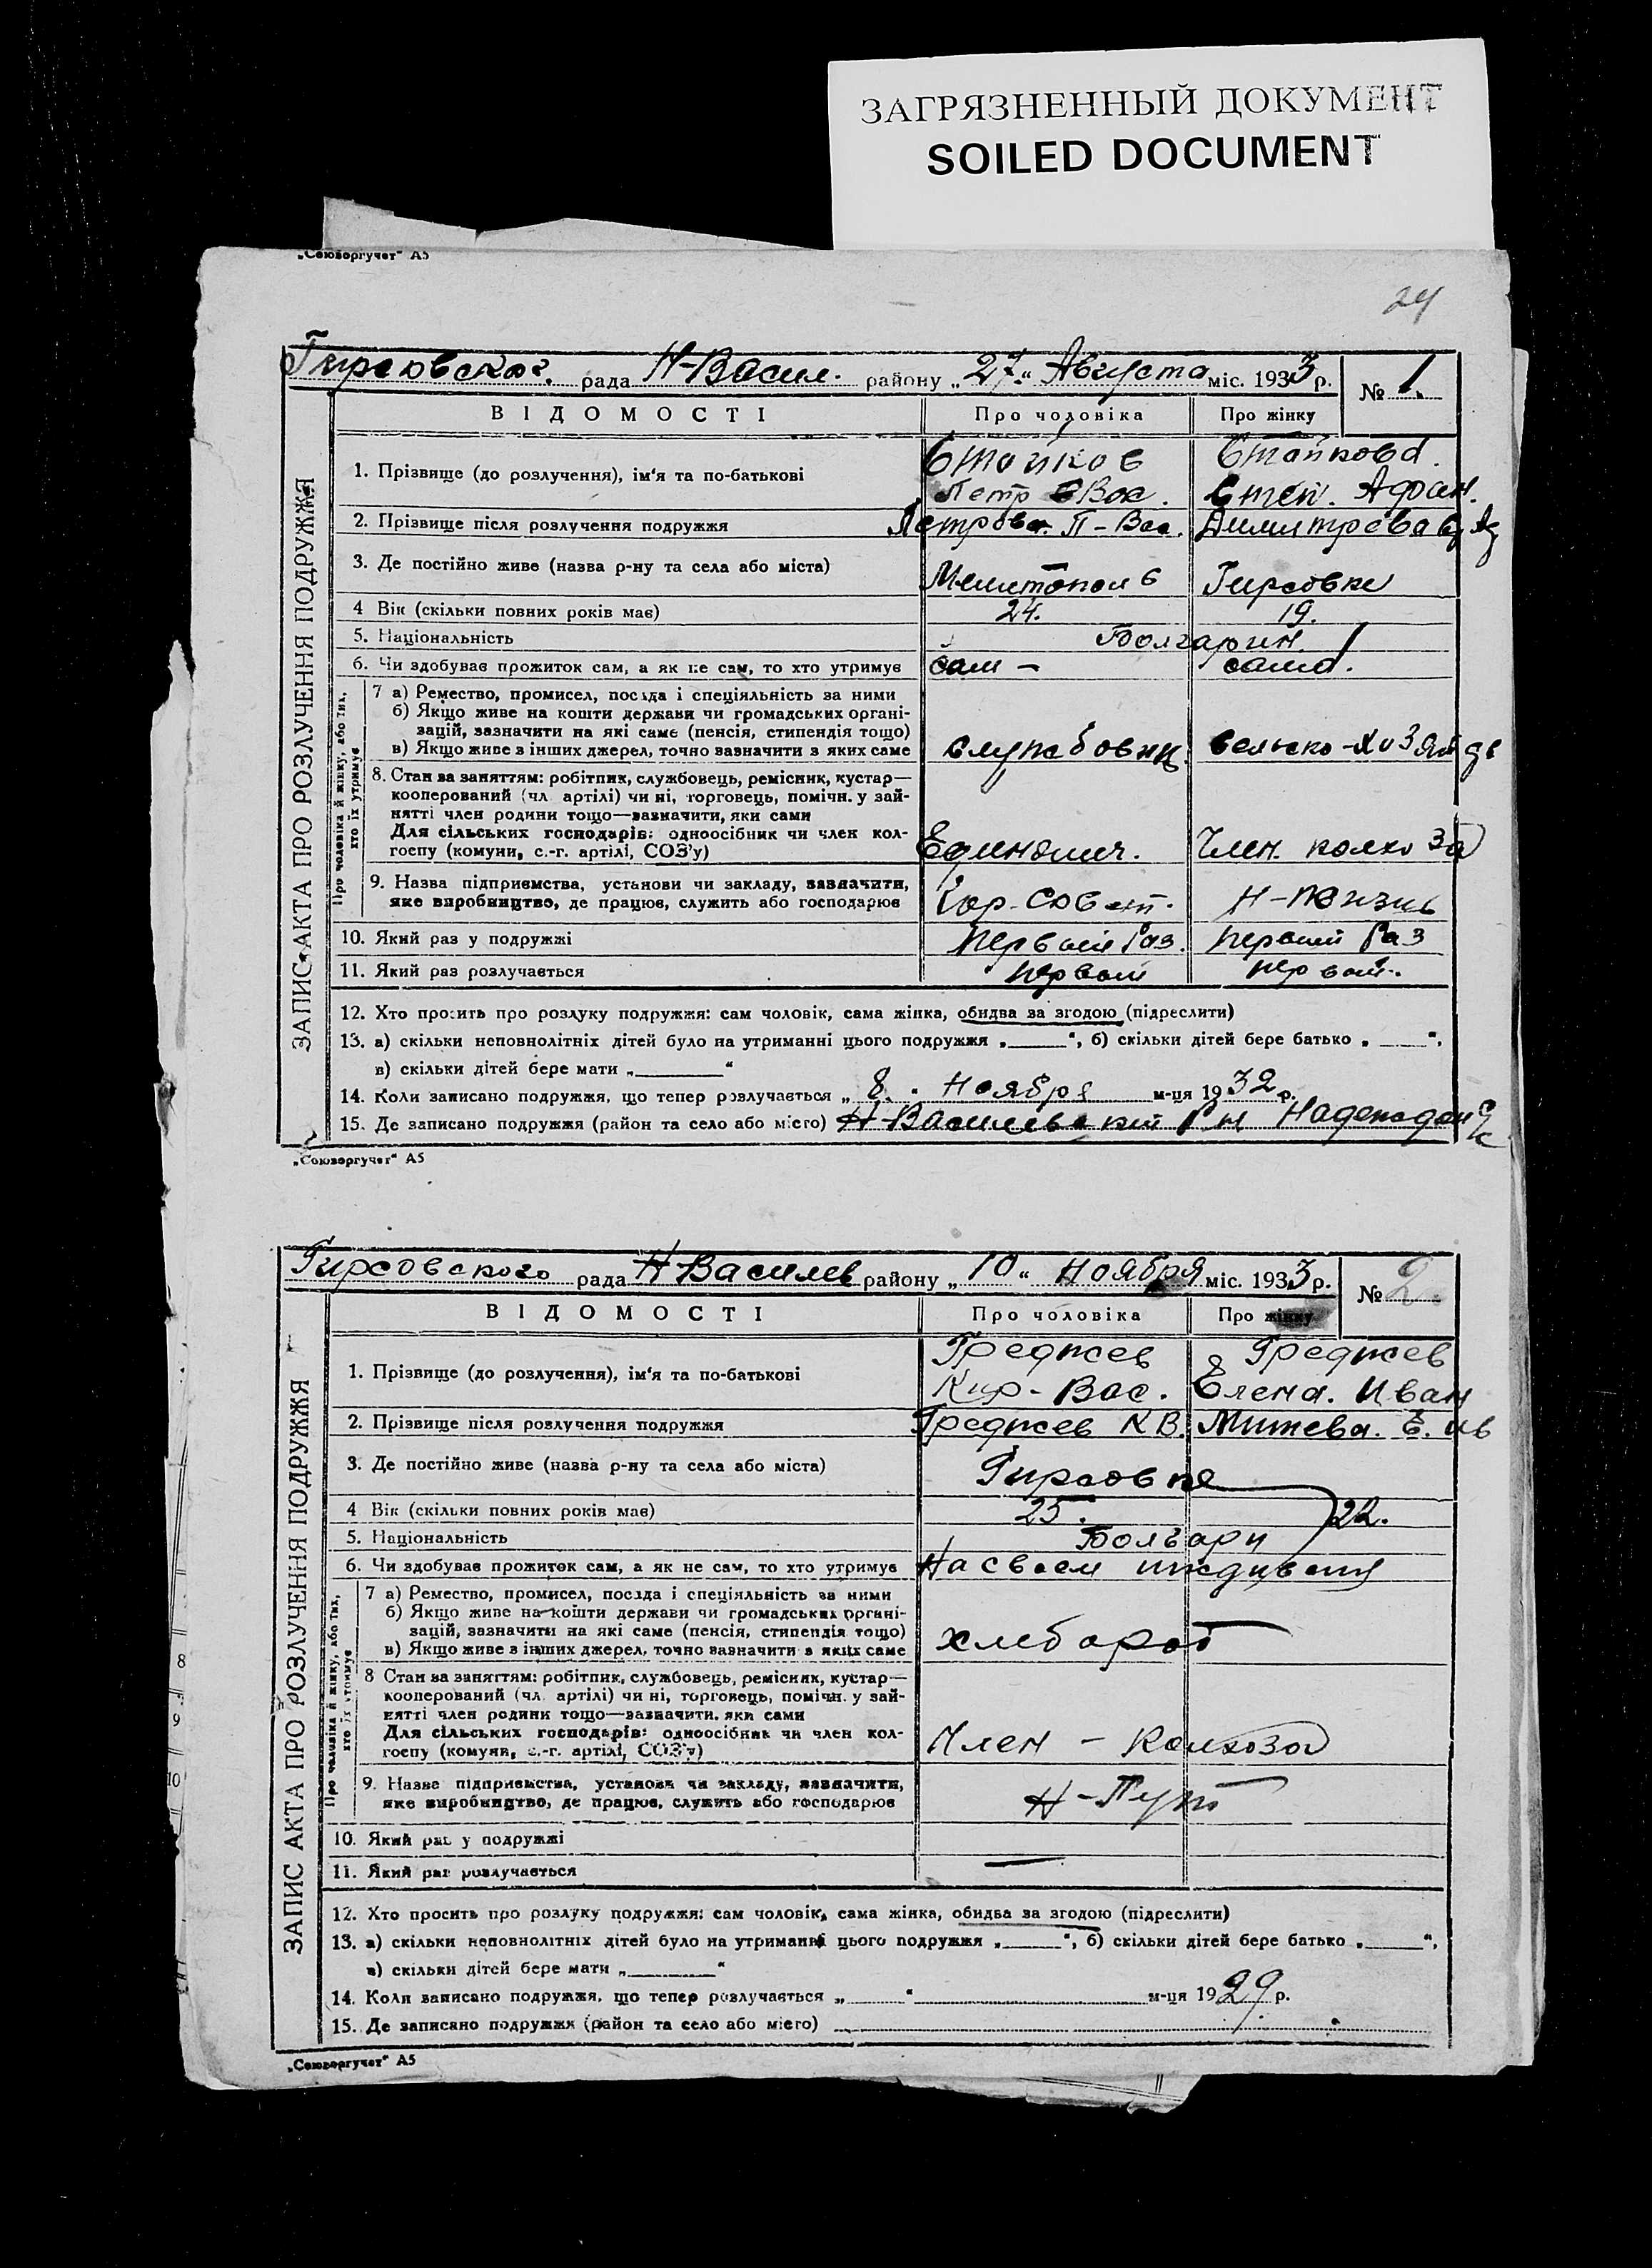 ЗАГРЯЗНЕННЫЙ ДОКУМЕНТ
SOILED DOCUMENT
„Союзоргучет“ А5
24
Гирсовског. рада Н-Васил. району „27“ Августа міс. 1933 р. № 1.
ВІДОМОСТІ Про чоловіка Про жінку
ЗАПИС АКТА ПРО РОЗЛУЧЕННЯ ПОДРУЖЖЯ
1. Прізвище (до розлучення), ім‘я та по-батькові Стойков Стойкова.
Петр Вас. Степ. Афан.
2. Прізвище після розлучення подружжя П-Вас. Димитрова
3. Де постійно живе (назва р-ну та села або міста) Гирсовка
4 Вік (скільки повних років має) 24. 19.
5. Національність Болгарин.
6. Чи здобував прожиток сам, а як не сам, то хто утримує сам – сама.
Про чоловіка й жінку, або тих, хто їх утримує
7 а) Ремество, промисел, посада і спеціяльність за ними
б) Якщо живе на кошти держави чи громадських органі-
зацій, зазначити на які саме (пенсія, стипендія тощо)
в) Якщо живе з інших джерел, точно вазначити з яких саме службовиц. сельско-хозяй
8. Стан ва заняттям: робітник, службовець, ремісник, кустар—
кооперований (чл артілі) чи ні, торговець, помічн. у зай-
нятті член родини тощо—вазначити, яки сами
Для сільських господарів: одноосібник чи член кол-
госпу (комуни, с.-г. артілі, СОЗ’у) Единолич. Член. колхоза
9. Назва підприємства, установи чи закладу, вазначити,
яке виробництво, де працює, служить або господарює Гор-Совет. Н-жизнь
10. Який раз у подружжі первый раз. первый раз
11. Який раз розлучається первый первый.
12. Хто просить про розлуку подружжя: сам чоловік, сама жінка, обидва за згодою (підреслити)
13. а) скільки неповнолітніх дітей було на утриманні цього подружжя „ “, б) скільки дітей бере батько „ “,
в) скільки дітей бере мати „ “
14. Коли записано подружжя, що тепер розлучається „ 8. “ Ноября м-ця 1932 р.
15. Де записано подружжя (район та село або місто) Н-Васильевский р-н
„Союзоргучет“ А5
Гирсовского рада Н-Василев району „10“ Ноября міс. 1933 р. № 2.
ВІДОМОСТІ Про чоловіка Про жінку
ЗАПИС АКТА ПРО РОЗЛУЧЕННЯ ПОДРУЖЖЯ
1. Прізвище (до розлучення), ім‘я та по-батькові Греджев Греджев
Кир-Вас. Елена. Иван
2. Прізвище після розлучення подружжя Греджев К В. Митева. Е. Ив
3. Де постійно живе (назва р-ну та села або міста) Гирсовке
4 Вік (скільки повних років має) 25. 22.
5. Національність Болгари
6. Чи здобував прожиток сам, а як не сам, то хто утримує На своем иждивении
Про чоловіка й жінку, або тих, хто їх утримує
7 а) Ремество, промисел, посада і спеціяльність за ними
б) Якщо живе на кошти держави чи громадських органі-
зацій, зазначити на які саме (пенсія, стипендія тощо)
в) Якщо живе з інших джерел, точно вазначити в яких саме хлебороб
8 Стан ва заняттям: робітник, службовець, ремісник, кустар—
кооперований (чл. артілі) чи ні, торговець, помічн. у зай-
нятті член родини тощо—вазначити, яки сами
Для сільських господарів: одноосібник чи член кол-
госпу (комуни, с.-г. артілі, СОЗ’у) Член – Колхоза
9. Назва підприємства, установи чи закладу, вазначити,
яке виробництво, де працює, служить або господарює Н-Путь
10. Який раз у подружжі
11. Який раз розлучається —
12. Хто просить про розлуку подружжя: сам чоловік, сама жінка, обидва за згодою (підреслити)
13. а) скільки неповнолітніх дітей було на утриманні цього подружжя „ “, б) скільки дітей бере батько „ “,
в) скільки дітей бере мати „ “
14. Коли записано подружжя, що тепер розлучається „ “ м-ця 1929 р.
15. Де записано подружжя (район та село або місто)
„Союзоргучет“ А5
8
9
10